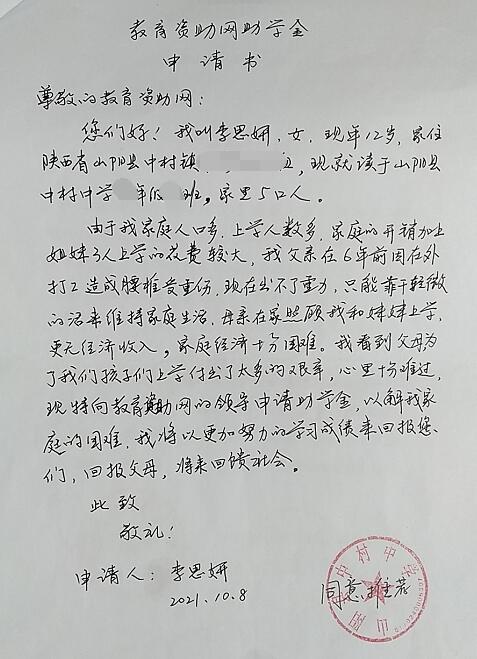 教育资助网助学金
申请书
尊敬的教育资助网：
您们好！我叫李思妍，女，现年12岁，家住
陕西省山阳县中村镇，现就读于山阳县
中村中学年级班。家里5口人。
由于我家庭人口多，上学人数多，家庭的开销加上
姐妹3人上学的花费较大，我父亲在6年前因在外
打工造成腰椎受重伤，现在出不了重力，只能靠干轻微
的活来维持家庭生活，母亲在家照顾我和妹妹上学，
更无经济收入。家庭经济十分困难。我看到父母为
了我们孩子们上学付出了太多的艰辛，心里十分难过，
现特向教育资助网的领导申请助学金，以解我家
庭的困难，我将以更加努力的学习成绩来回报您
们，回报父母，将来回馈社会。
此致
敬礼！
申请人：李思妍
2021.10.8
同意推荐
中村中学